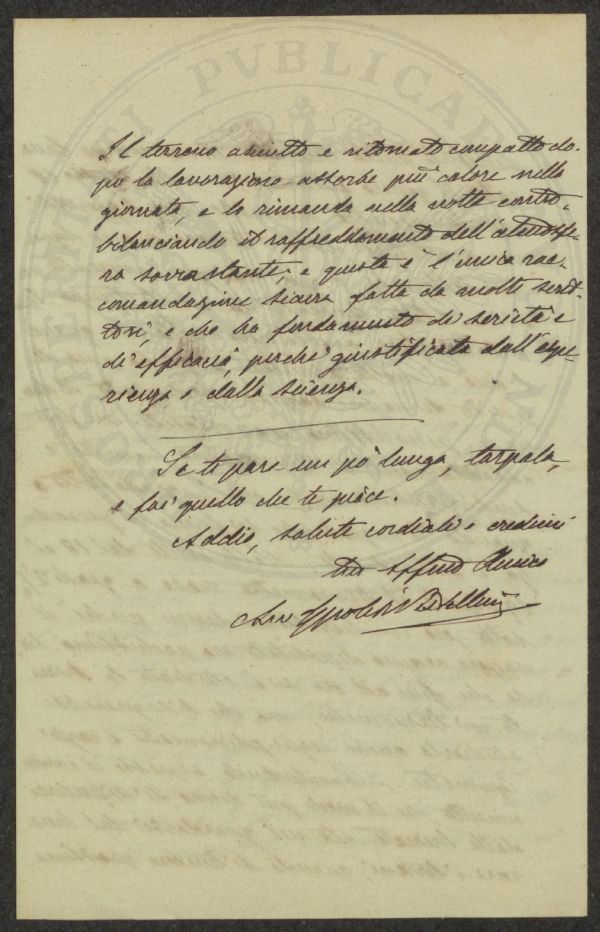 Il terreno asciutto e ritornato compatto do-
po la lavorazione assorbe più calore nella
giornata, e lo rimanda nella notte contro-
bilanciando il raffreddamento dell'atmosfe-
ra sovrastante; e questa è l'unica rac-
comandazione sicura fatta da molti scrit-
tori, e che ha fondamento di serietà e
di efficacia, perchè giustificata dall'espe-
rienza e dalla scienza.
Se ti pare un pò lunga, tarpala,
e fai quello che ti piace.
Addio, saluti cordiali e credimi
tuo Affmo Amico